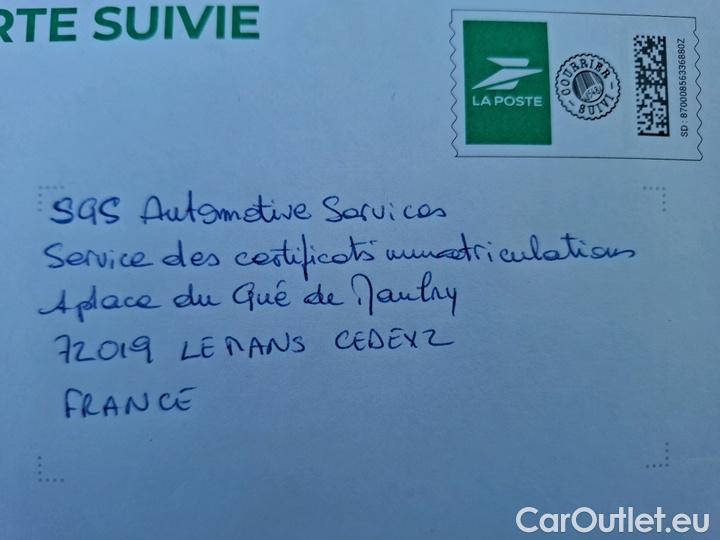 RTE SUIVIE
LA POSTE
COURRIER SUIVI
SD : 87000856336880Z
SGS Automotive Services
Service des certificats immatriculations
1 place du Gué de Maulny
72019 LE MANS CEDEX 2
FRANCE
CarOutlet.eu